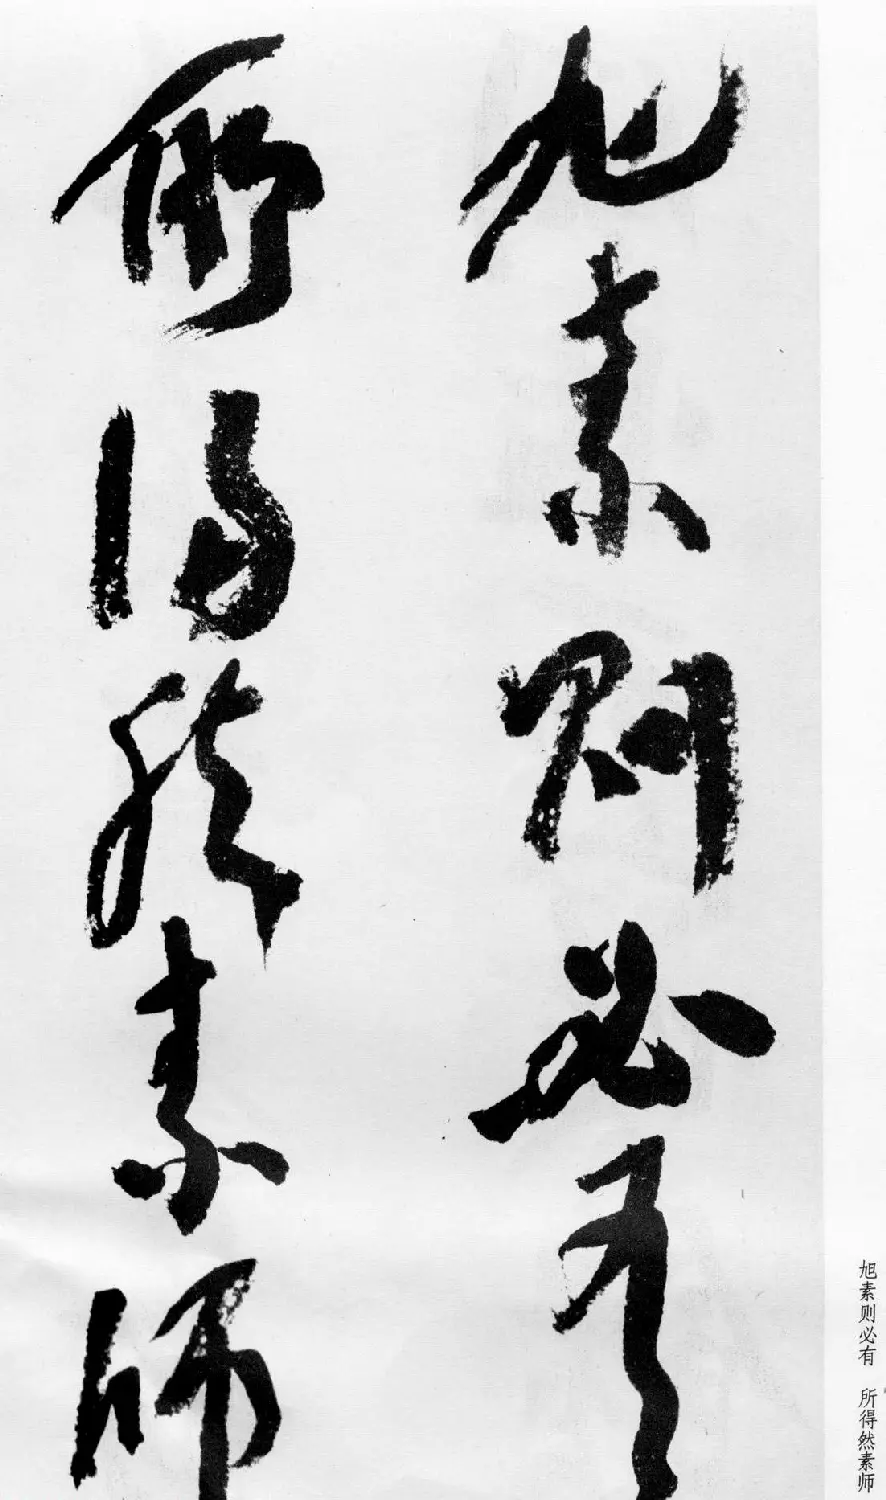 旭素则必有
所得然素师
旭素则必有 所得然素师